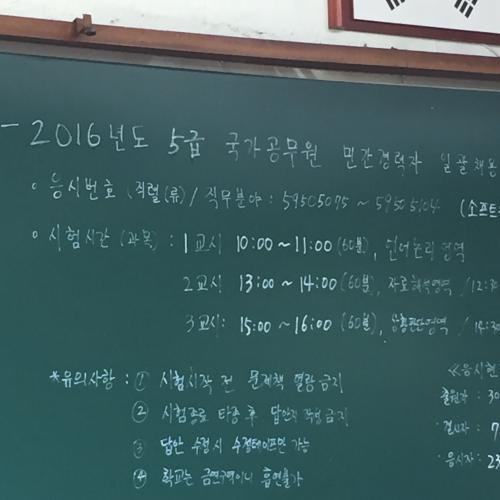 - 2016년도 5급 국가공무원 민간경력자 일괄채용
• 응시번호 (직렬(류)/직무분야 : 59505075 ~ 59505104 (소프트
• 시험시간 (과목) : 1교시 10:00 ~ 11:00 (60분), 언어논리영역
2교시 13:00 ~ 14:00 (60분), 자료해석영역 /12:30
3교시: 15:00 ~ 16:00 (60분), 상황판단영역 /14:30
*유의사항 : ① 시험시작 전 문제책 열람금지
② 시험종료 타종 후 답안지 작성금지
③ 답안 수정시 수정테이프만 가능
④ 학교는 금연구역이니 흡연불가
<<응시현
출원자 : 30
• 결시자 : 7
• 응시자 : 23